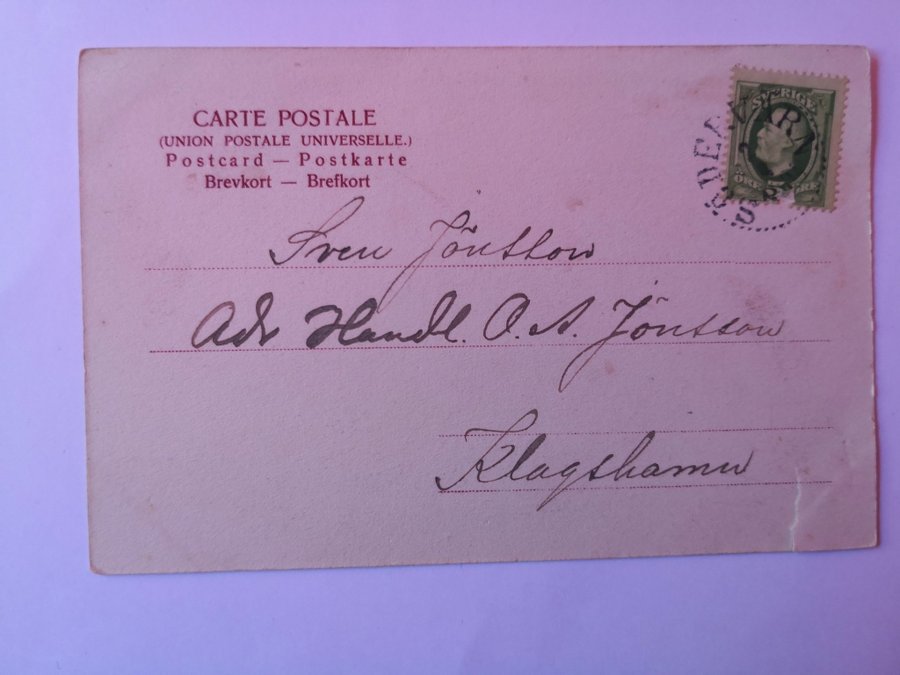 CARTE POSTALE
(UNION POSTALE UNIVERSELLE.)
Postcard — Postkarte
Brevkort — Brefkort
SVERIGE
5 ÖRE
Sven Jönsson
Adr Handl. O. A. Jönsson
Klagshamn